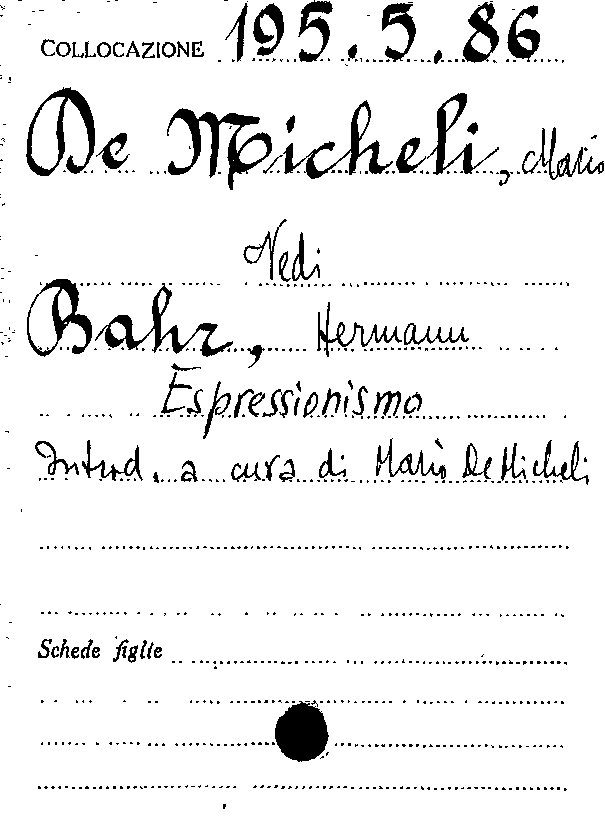 COLLOCAZIONE 195.5.86
De Micheli, Mario
Vedi
Bahr, Hermann
Espressionismo
Introd. a cura di Mario De Micheli
Schede figlie